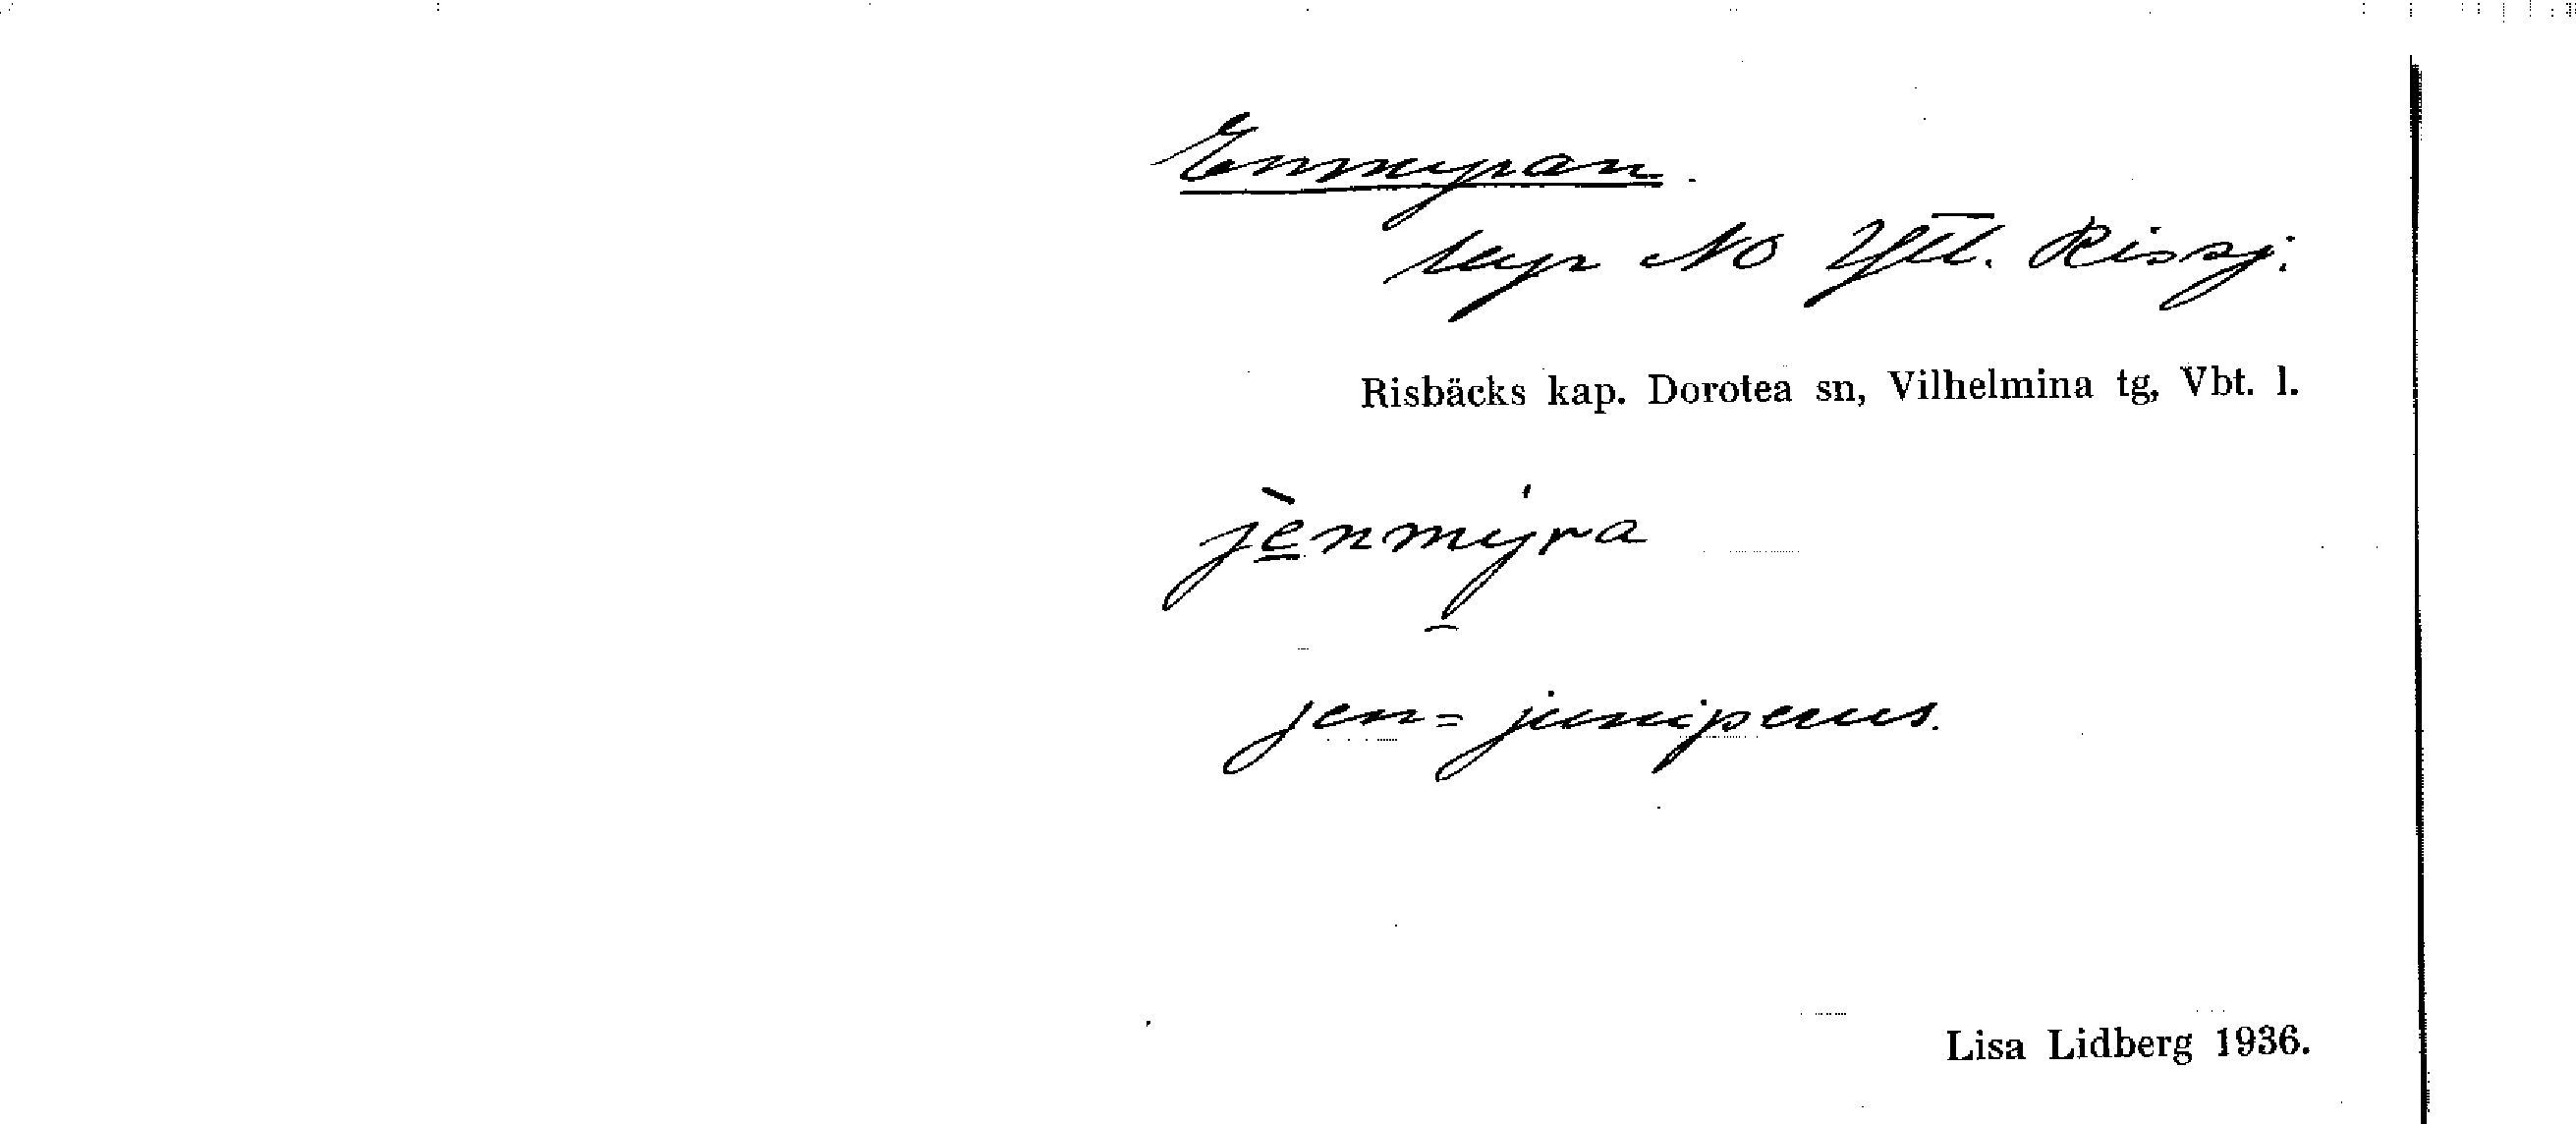 Enmyran.
myr NO Yttl. Rissj:
Risbäcks kap. Dorotea sn, Vilhelmina tg, Vbt. l.
jènmy̍ra
jen = juniperus.
Lisa Lidberg 1936.